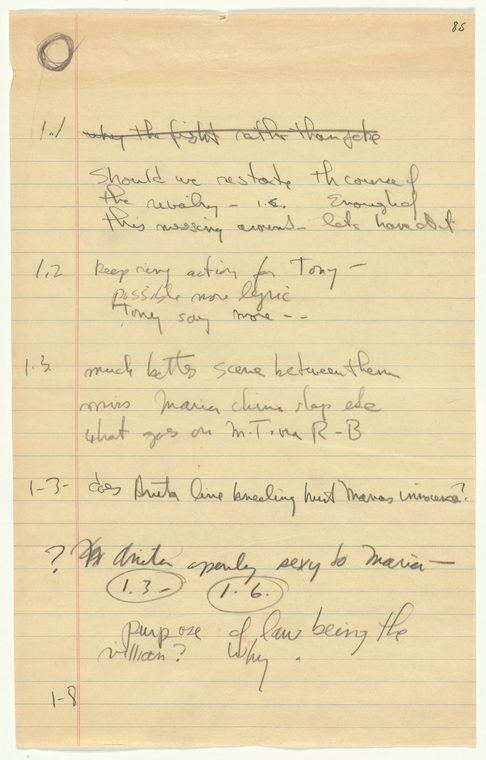 85
1.1 why the fight rather than
Should we restate the course of
the rivalry - i.e. Enough of
this messing around - lets have it
1.2 keep ring action for Tony -
possible more lyric
Tony say more --
1.3 much better scene between them
miss Maria china slap
what goes on M.T. R-B
1-3- does Anita line kneeling hurt Marias innocence?
? Anita openly sexy to Maria -
1.3- 1.6.
purpose of law being the
villian? Why.
1-8